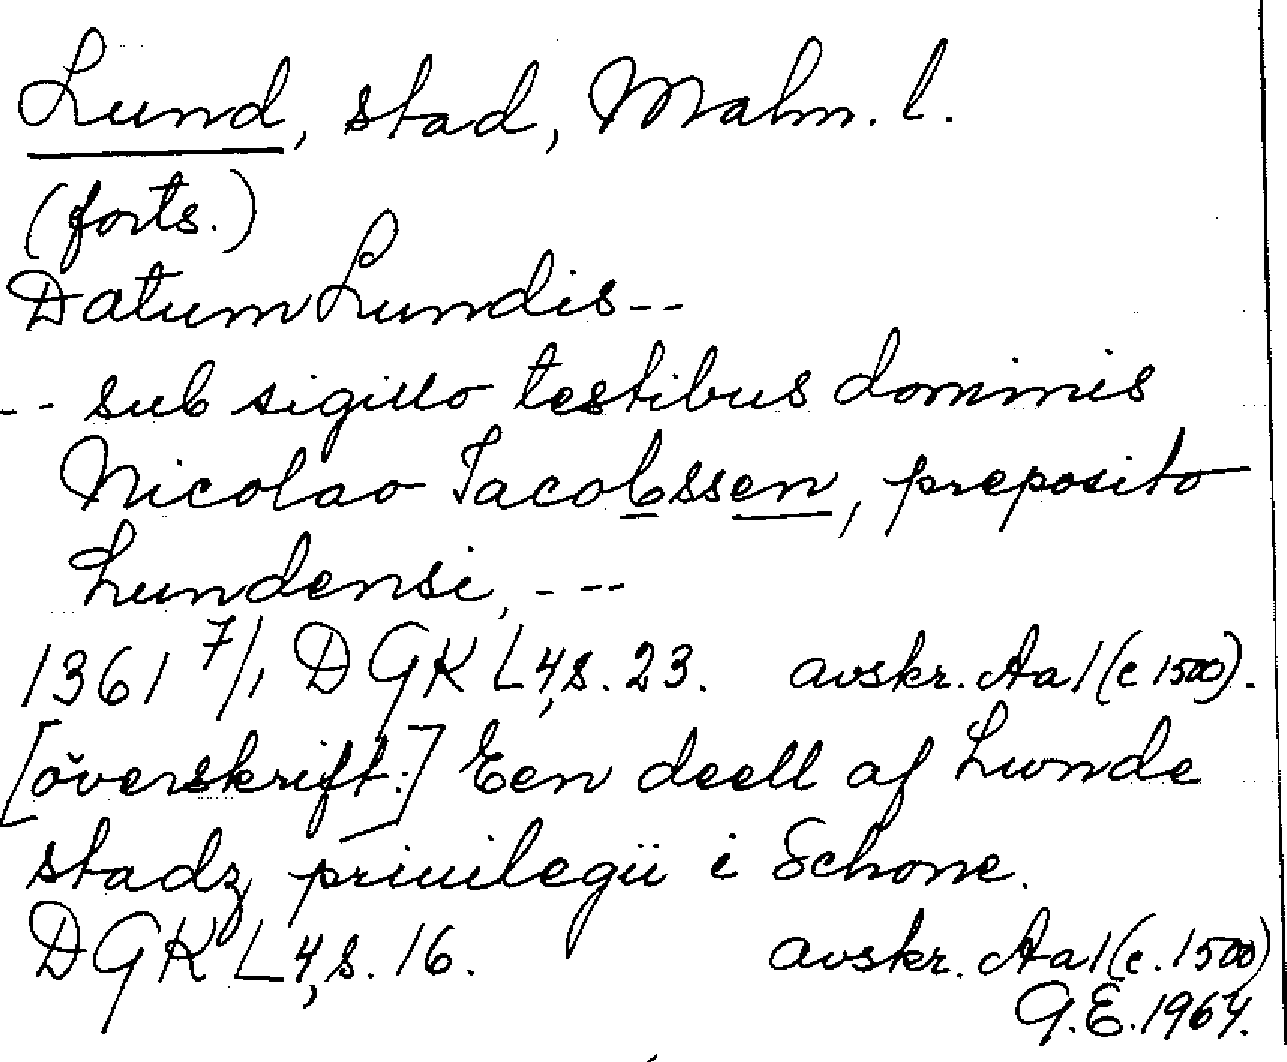 Lund, stad, Malm. l.
(forts.)
Datum Lundis --
-- sub sigillo testibus dominis
Nicolao Iacobssen, preposito
Lundensi, ---
1361 7/1 DGK L4, s. 23. avskr. Aa 1 (c 1500).
[överskrift:] Een deell af Lunde
stadz priuilegii i Schone.
DGK L4, s. 16. avskr. Aa 1 (c. 1500)
G.E. 1964.